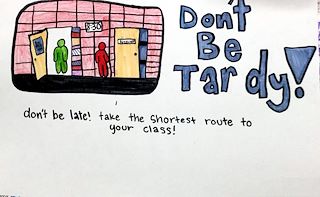 Don't
Be
Tardy!
8:30
don't be late! take the shortest route to
your class!